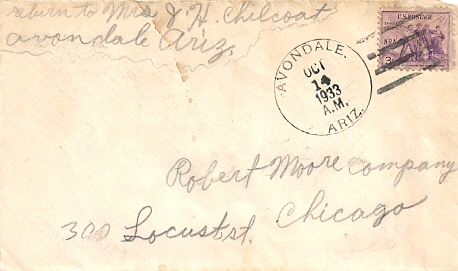 return to Mrs J. H. Chilcoat
avondale Ariz.
U.S. POSTAGE
NRA
3¢
AVONDALE.
OCT
14
1933
A.M.
ARIZ.
Robert Moore company
300 Locust st. Chicago